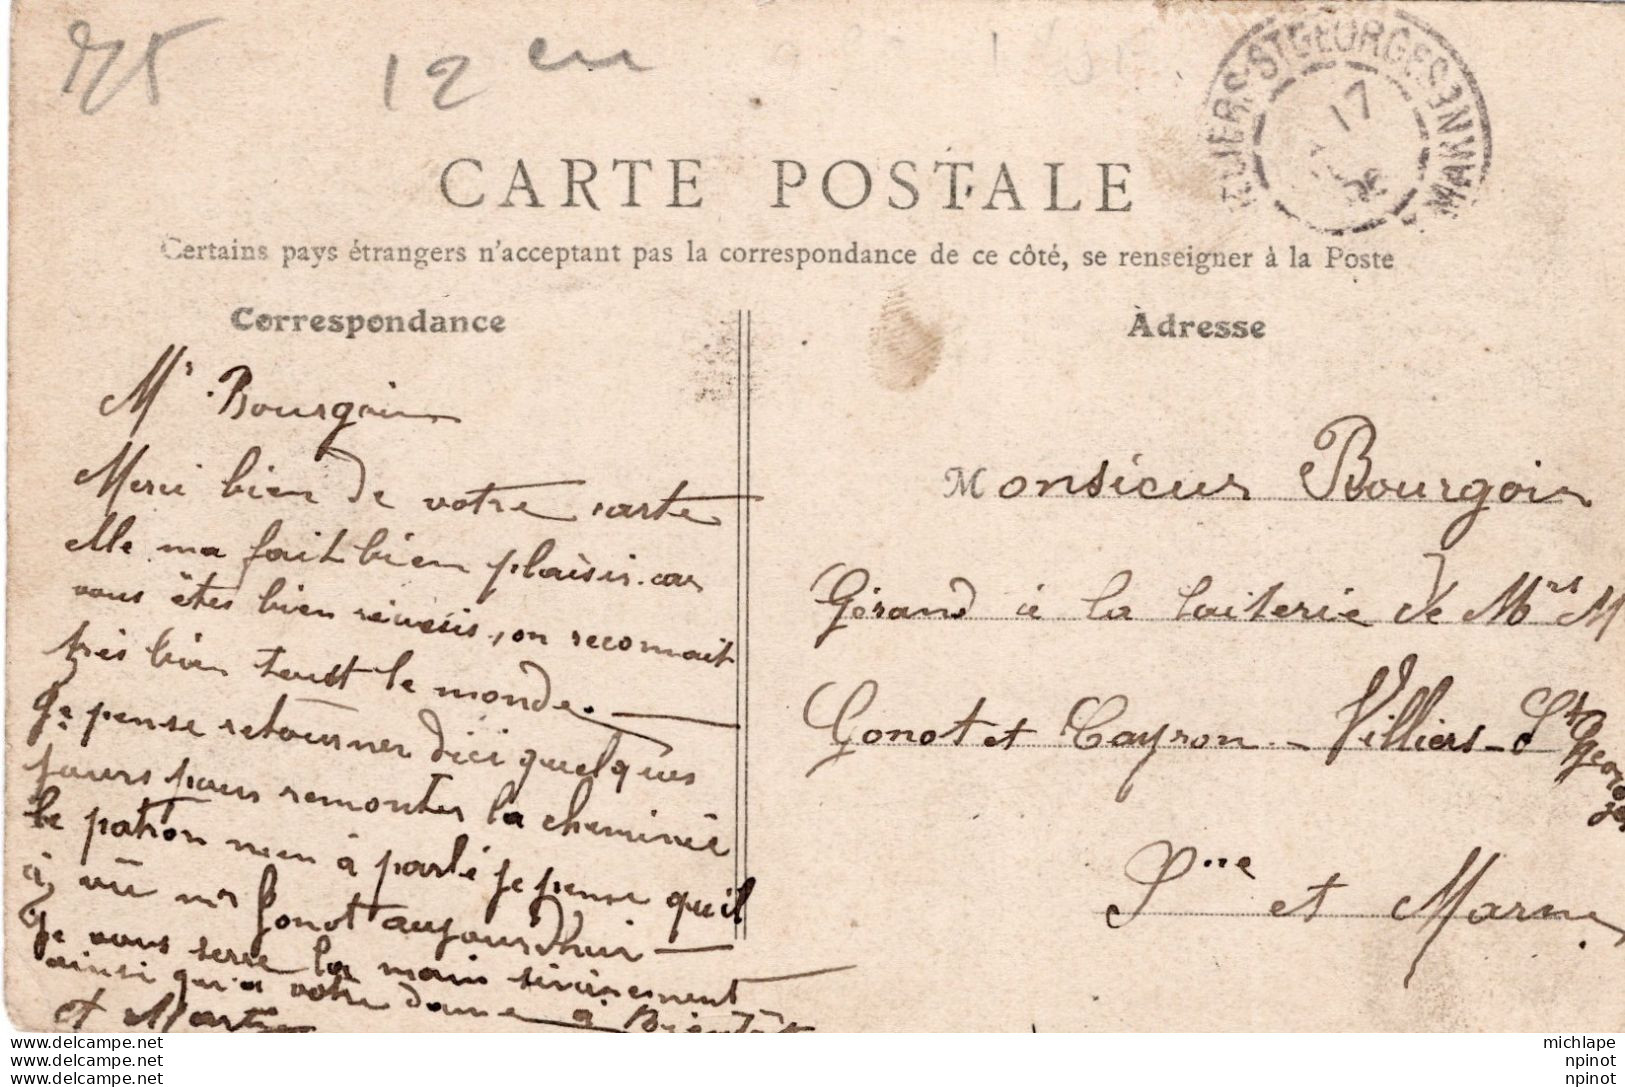 75
12 eu
VILLIERS-ST GEORGES S. ET MARNE
17
CARTE POSTALE
Certains pays étrangers n'acceptant pas la correspondance de ce côté, se renseigner à la Poste
Correspondance
Adresse
Mr Bourgoin
Merci bien de votre carte
elle ma fait bien plaisir car
vous êtes bien réussis, on reconnait
très bien tout le monde.
Je pense retourner dici quelques
jours pour remonter la cheminée
le patron men à parlé je pense qu'il
à vû mr Gonot aujourdhui
Je vous serre la main sincèrement
ainsi qu'a votre dame à Bientôt
et Marthe
Monsieur Bourgoin
Gérand à la laiterie de Mrs M
Gonot et Cayron - Villiers-St Georges
Sne et Marne
delcampe.net
delcampe.net
delcampe.net
michlape
npinot
npinot